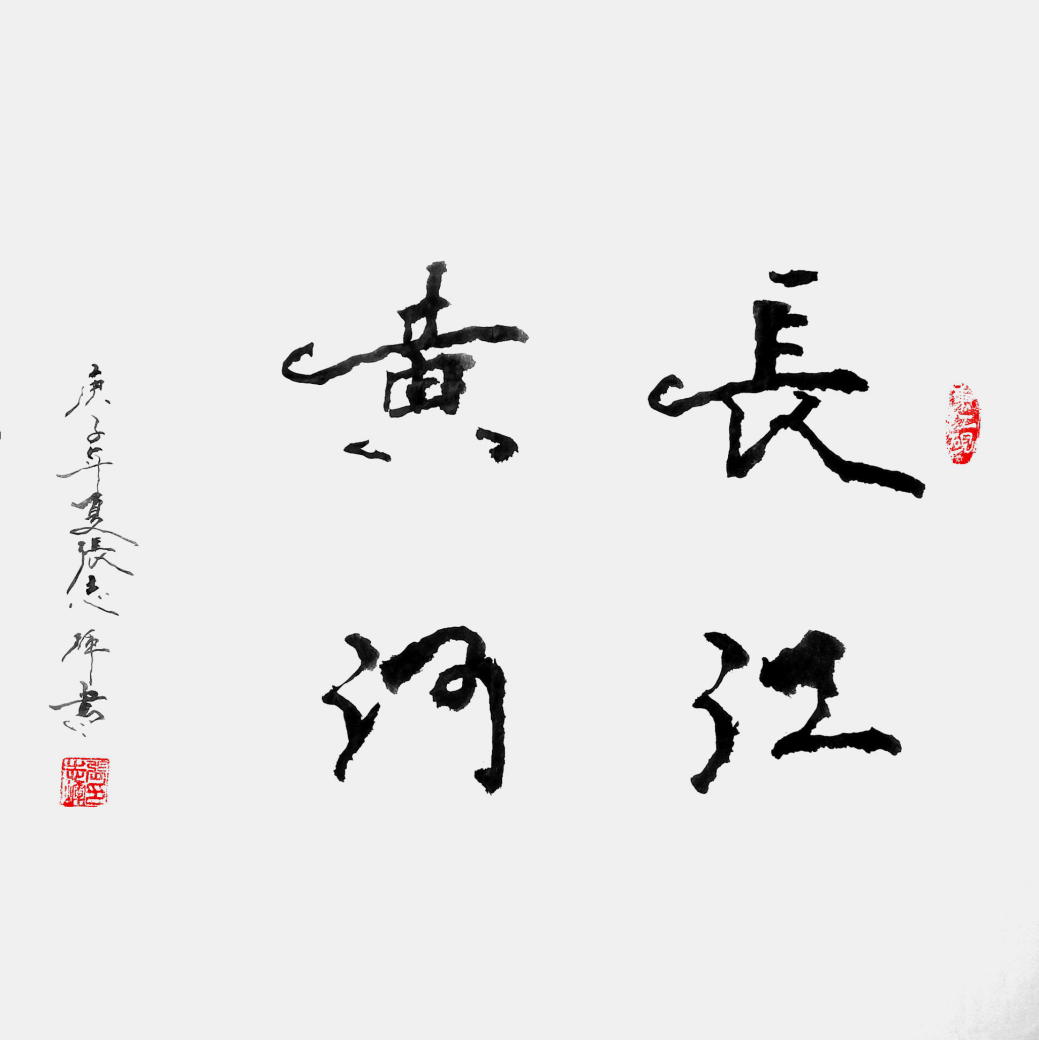 長江
黄河
庚子年夏張志師書